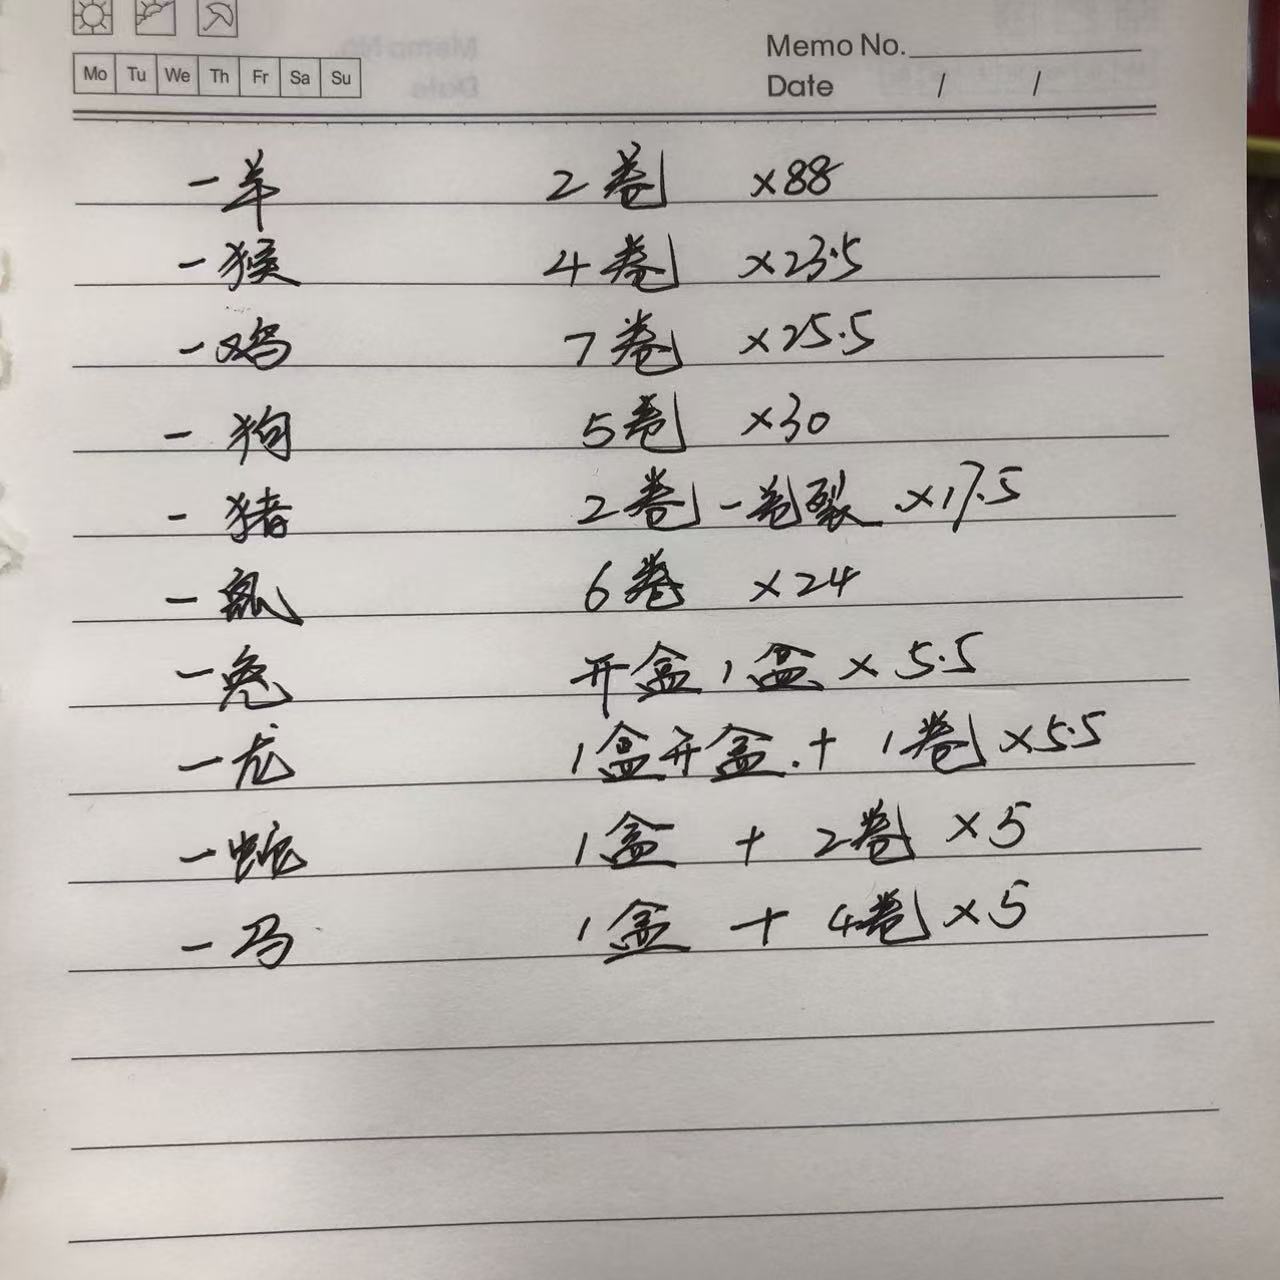 Memo No.
Mo Tu We Th Fr Sa Su
Date / /
一羊 2卷 ×88
一猴 4卷 ×23.5
一鸡 7卷 ×25.5
一狗 5卷 ×30
一猪 2卷一卷裂.×17.5
一鼠 6卷 ×24
一兔 开盒1盒×5.5
一龙 1盒开盒.+1卷×5.5
一蛇 1盒 + 2卷×5
一马 1盒 + 4卷×5